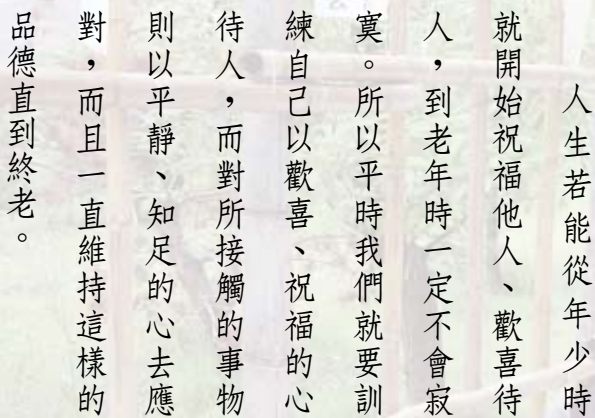 人生若能從年少時
就開始祝福他人、歡喜待
人，到老年時一定不會寂
寞。所以平時我們就要訓
練自己以歡喜、祝福的心
待人，而對所接觸的事物
則以平靜、知足的心去應
對，而且一直維持這樣的
品德直到終老。